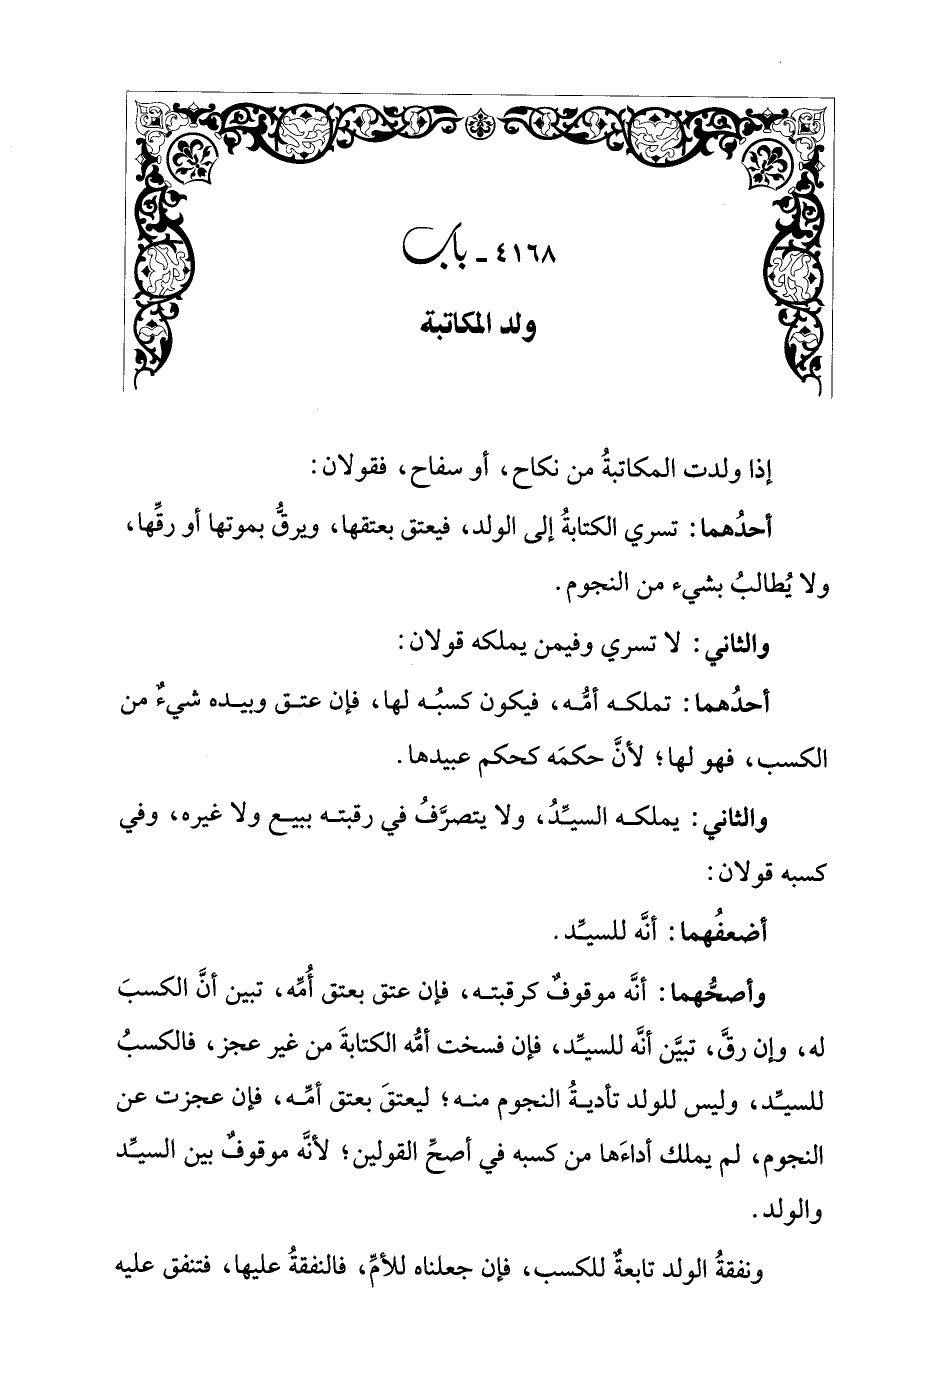 ٤١٦٨ - باب
ولد المكاتبة
إذا ولدت المكاتبةُ من نكاح، أو سفاح، فقولان:
أحدُهما: تسري الكتابةُ إلى الولد، فيعتق بعتقها، ويرقُّ بموتها أو رقِّها،
ولا يُطالبُ بشيء من النجوم.
والثاني: لا تسري وفيمن يملكه قولان:
أحدُهما: تملكه أمُّه، فيكون كسبُه لها، فإن عتق وبيده شيءٌ من
الكسب، فهو لها؛ لأنَّ حكمَه كحكم عبيدها.
والثاني: يملكه السيِّدُ، ولا يتصرَّفُ في رقبته ببيع ولا غيره، وفي
كسبه قولان:
أضعفُهما: أنَّه للسيِّد.
وأصحُّهما: أنَّه موقوفٌ كرقبته، فإن عتق بعتق أُمِّه، تبين أنَّ الكسبَ
له، وإن رقَّ، تبيَّن أنَّه للسيِّد، فإن فسخت أمُّه الكتابةَ من غير عجز، فالكسبُ
للسيِّد، وليس للولد تأديةُ النجوم منه؛ ليعتقَ بعتق أمِّه، فإن عجزت عن
النجوم، لم يملك أداءَها من كسبه في أصحِّ القولين؛ لأنَّه موقوفٌ بين السيِّد
والولد.
ونفقةُ الولد تابعةٌ للكسب، فإن جعلناه للأمِّ، فالنفقةُ عليها، فتنفق عليه